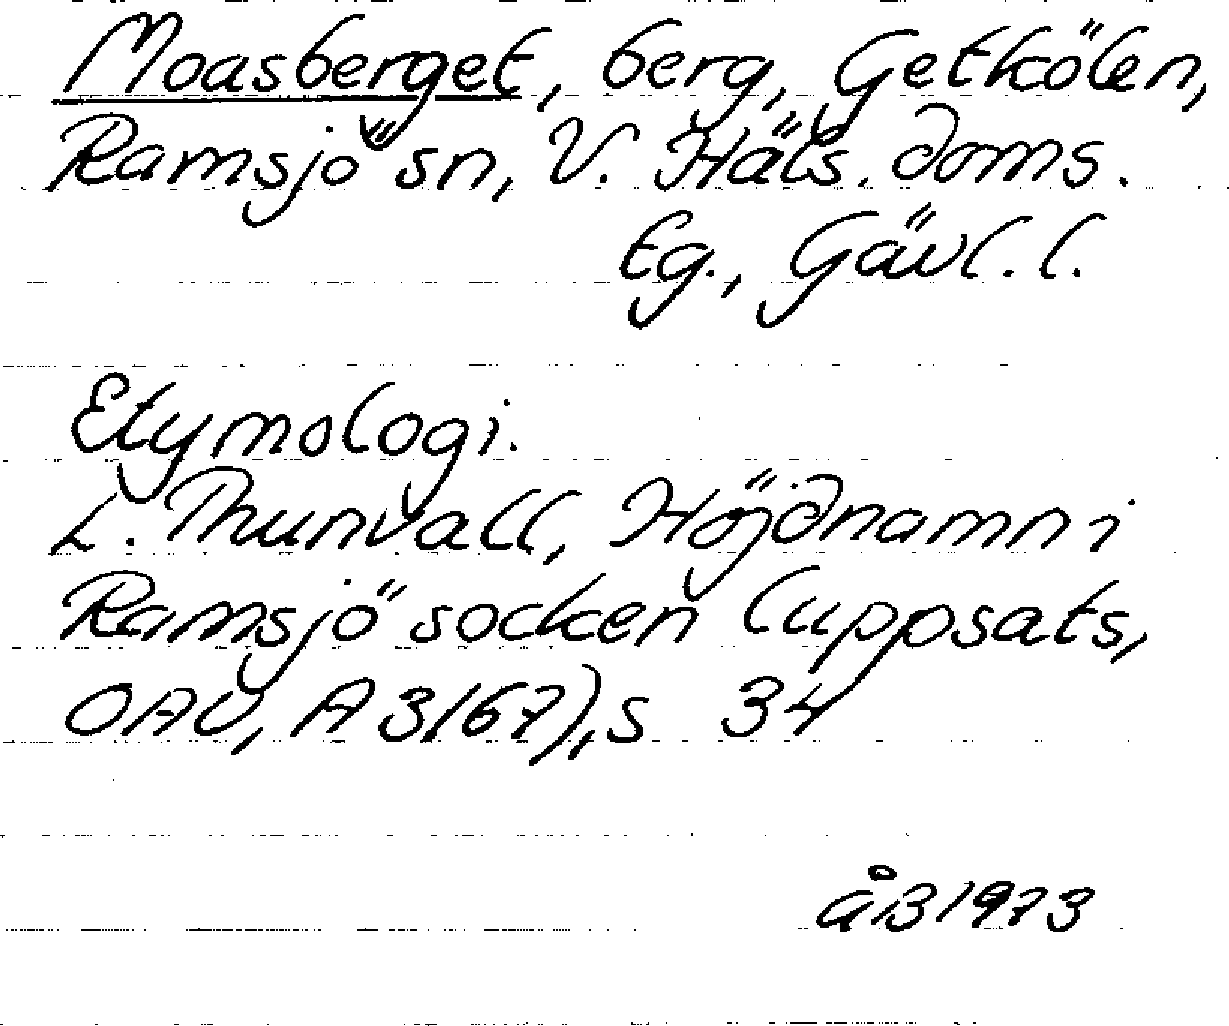 Moasberget, berg, Getkölen,
Ramsjö sn, V. Häls. doms.
tg., Gävl. l.
Etymologi.
L. Thunvall, Höjdnamn i
Ramsjö socken (uppsats,
OAU, A 3/67), s 34
åB 1973